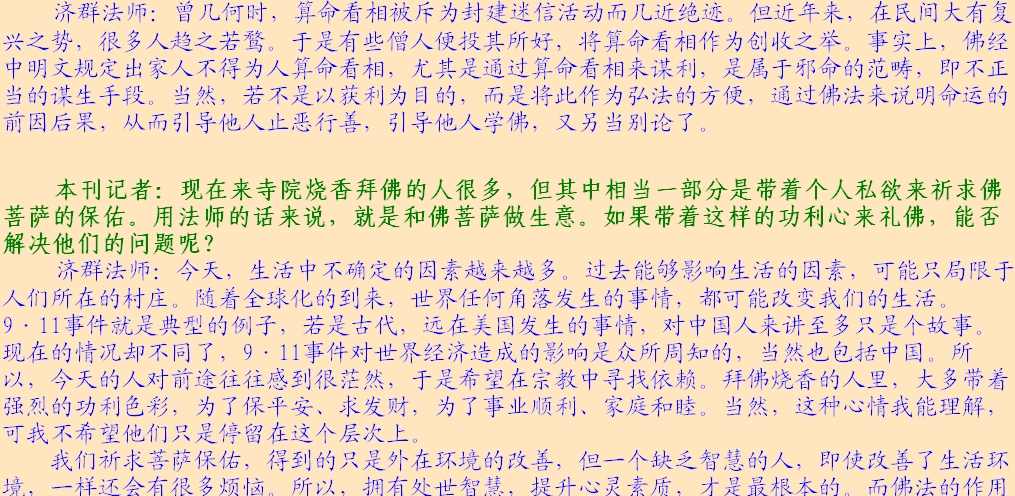 济群法师：曾几何时，算命看相被斥为封建迷信活动而几近绝迹。但近年来，在民间大有复
兴之势，很多人趋之若鹜。于是有些僧人便投其所好，将算命看相作为创收之举。事实上，佛经
中明文规定出家人不得为人算命看相，尤其是通过算命看相来谋利，是属于邪命的范畴，即不正
当的谋生手段。当然，若不是以获利为目的，而是将此作为弘法的方便，通过佛法来说明命运的
前因后果，从而引导他人止恶行善，引导他人学佛，又另当别论了。
本刊记者：现在来寺院烧香拜佛的人很多，但其中相当一部分是带着个人私欲来祈求佛
菩萨的保佑。用法师的话来说，就是和佛菩萨做生意。如果带着这样的功利心来礼佛，能否
解决他们的问题呢？
济群法师：今天，生活中不确定的因素越来越多。过去能够影响生活的因素，可能只局限于
人们所在的村庄。随着全球化的到来，世界任何角落发生的事情，都可能改变我们的生活。
9·11事件就是典型的例子，若是古代，远在美国发生的事情，对中国人来讲至多只是个故事。
现在的情况却不同了，9·11事件对世界经济造成的影响是众所周知的，当然也包括中国。所
以，今天的人对前途往往感到很茫然，于是希望在宗教中寻找依赖。拜佛烧香的人里，大多带着
强烈的功利色彩，为了保平安、求发财，为了事业顺利、家庭和睦。当然，这种心情我能理解，
可我不希望他们只是停留在这个层次上。
我们祈求菩萨保佑，得到的只是外在环境的改善，但一个缺乏智慧的人，即使改善了生活环
境，一样还会有很多烦恼。所以，拥有处世智慧，提升心灵素质，才是最根本的。而佛法的作用